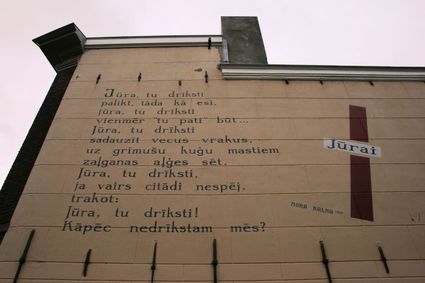 Jūra, tu drīksti
palikt, tāda kā esi,
jūra, tu drīksti
vienmēr "tu pati" būt...
Jūra, tu drīksti
sadauzīt vecus vrakus,
uz grimušu kuģu mastiem
zaļganas aļģes sēt.
Jūra, tu drīksti,
ja vairs citādi nespēj,
trakot:
Jūra, tu drīksti!
Kāpēc nedrīkstam mēs?
Jūrai
MORA KALNA